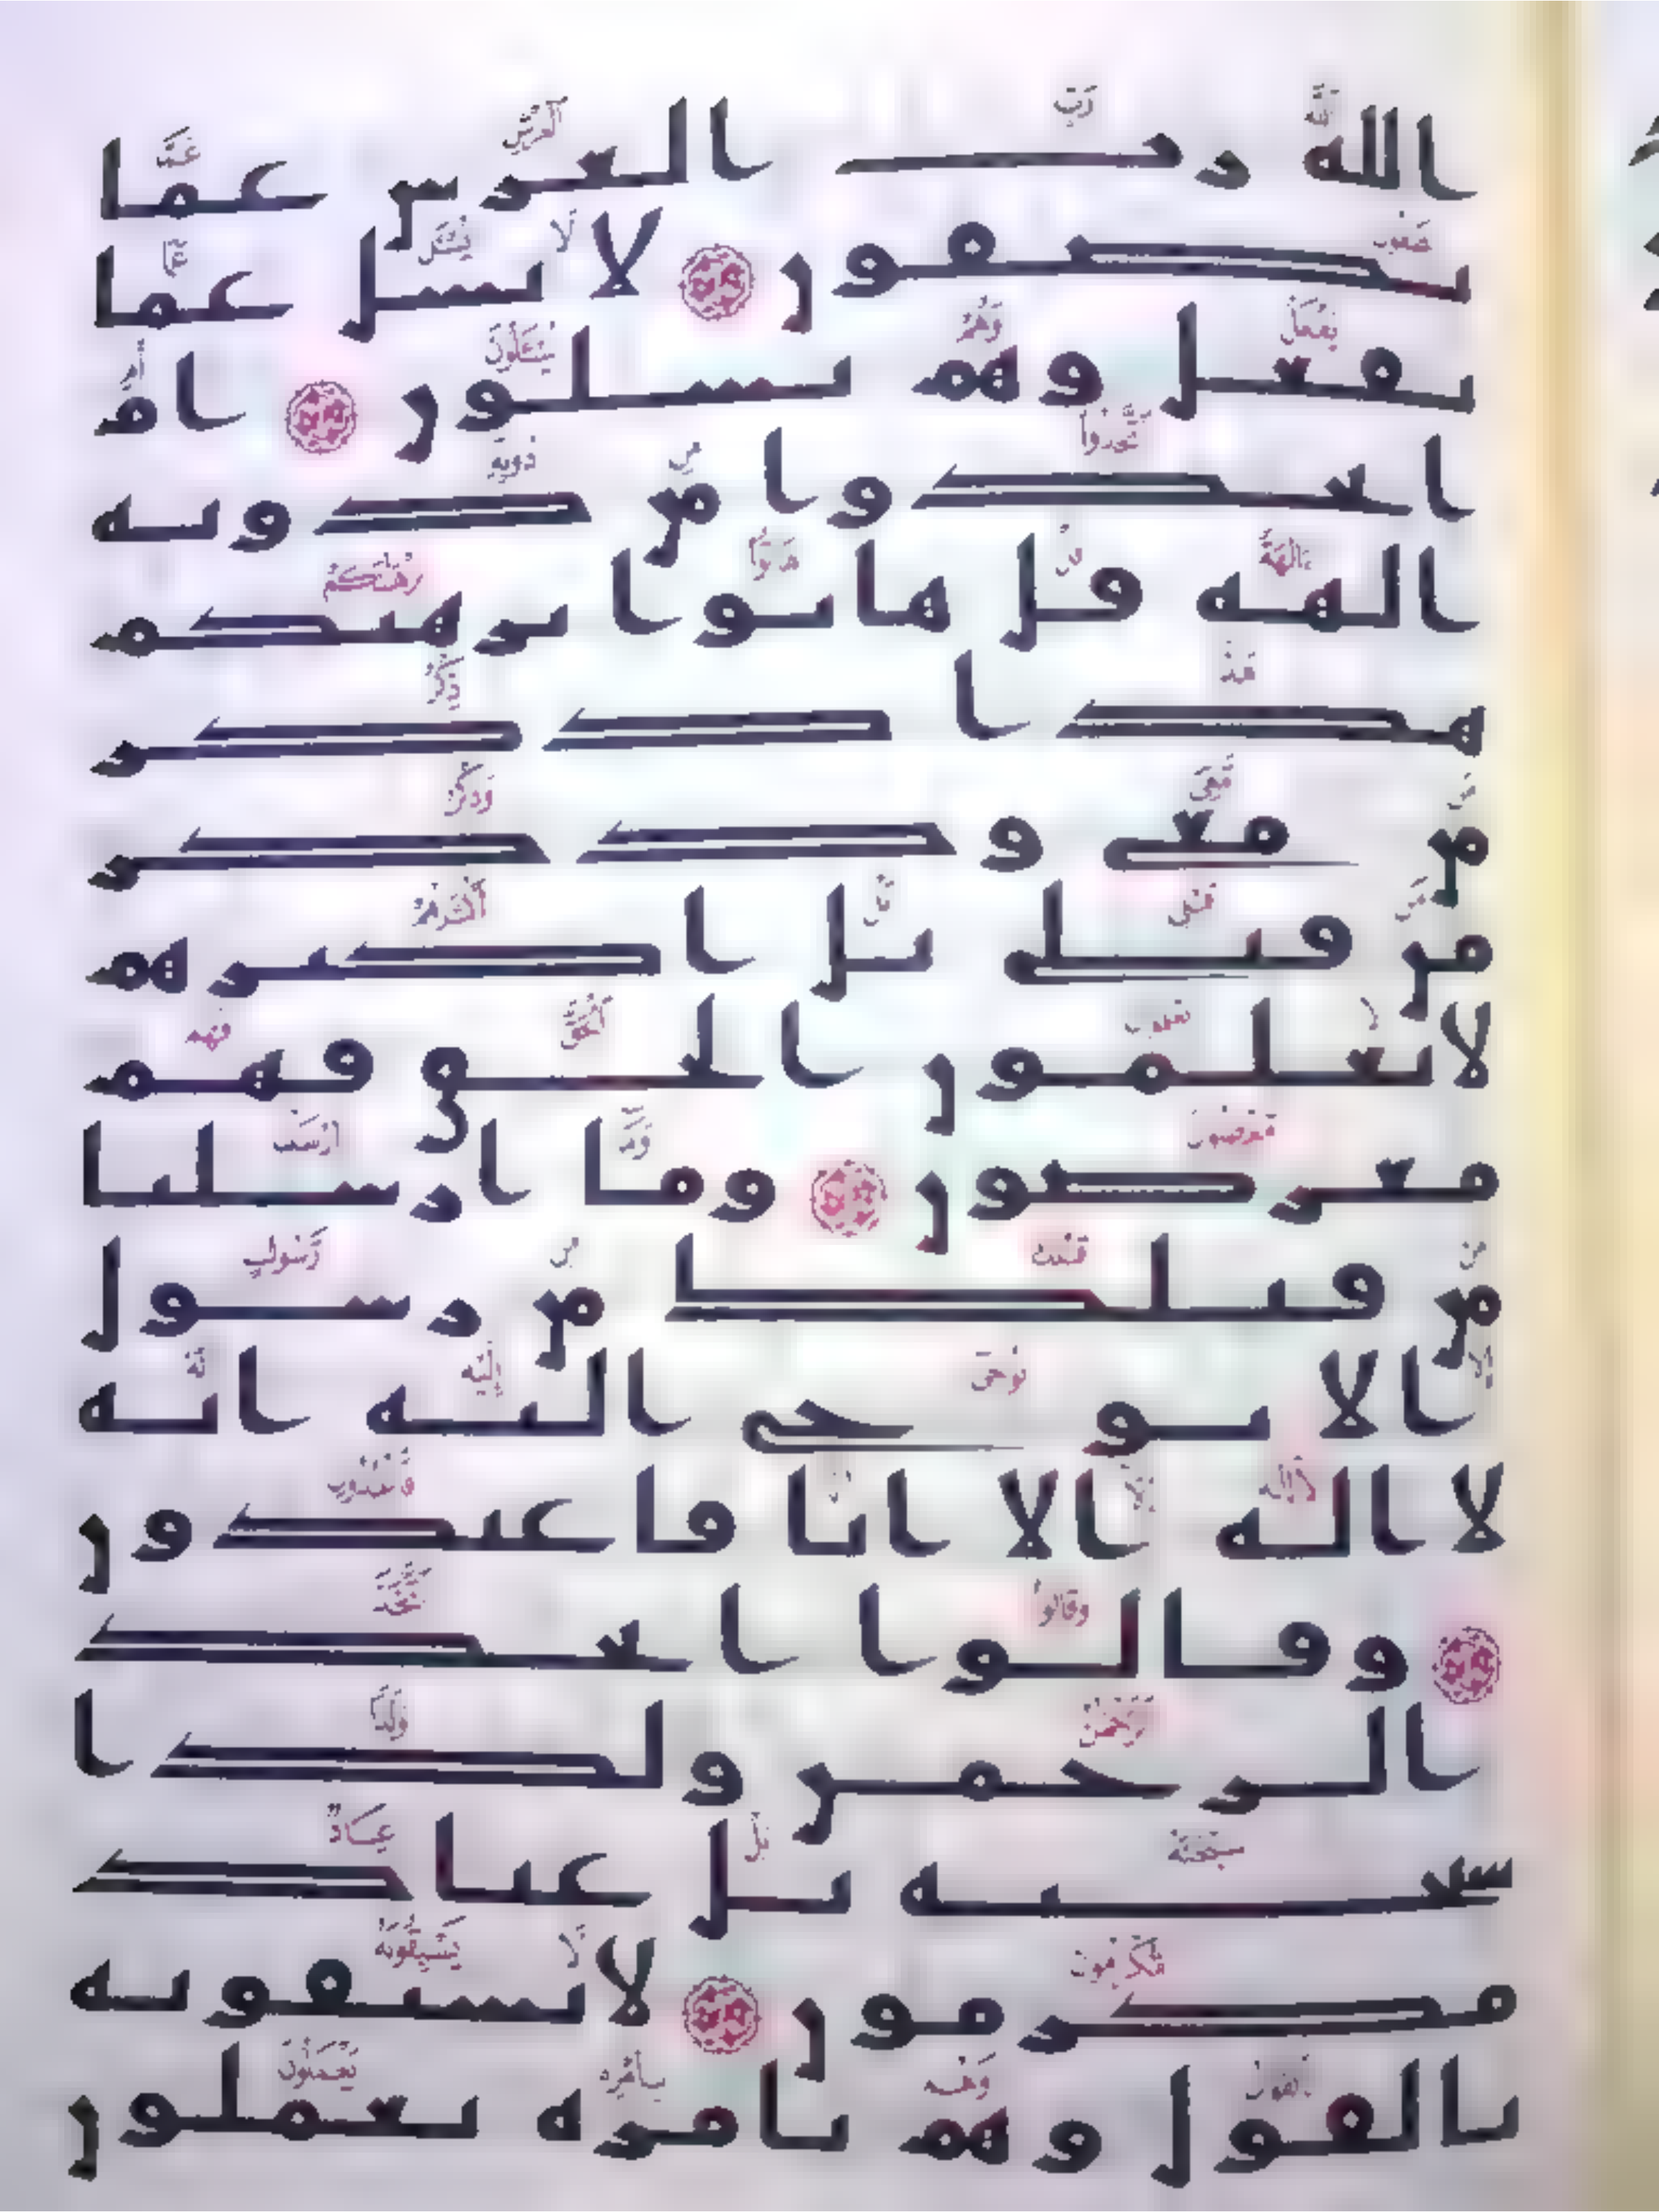 الله رب العرش عما
يصفون ۝ لا يسل عما
يفعل وهم يسلون ۝ ام
اتخذوا من دونه
الهة قل هاتوا برهنكم
هذا ذكر
من معي وذكر
من قبلي بل اكثرهم
لا يعلمون الحق فهم
معرضون ۝ وما ارسلنا
من قبلك من رسول
الا نوحي اليه انه
لا اله الا انا فاعبدون
۝ وقالوا اتخذ
الرحمن ولدا
سبحنه بل عباد
مكرمون ۝ لا يسبقونه
بالقول وهم بامره يعملون